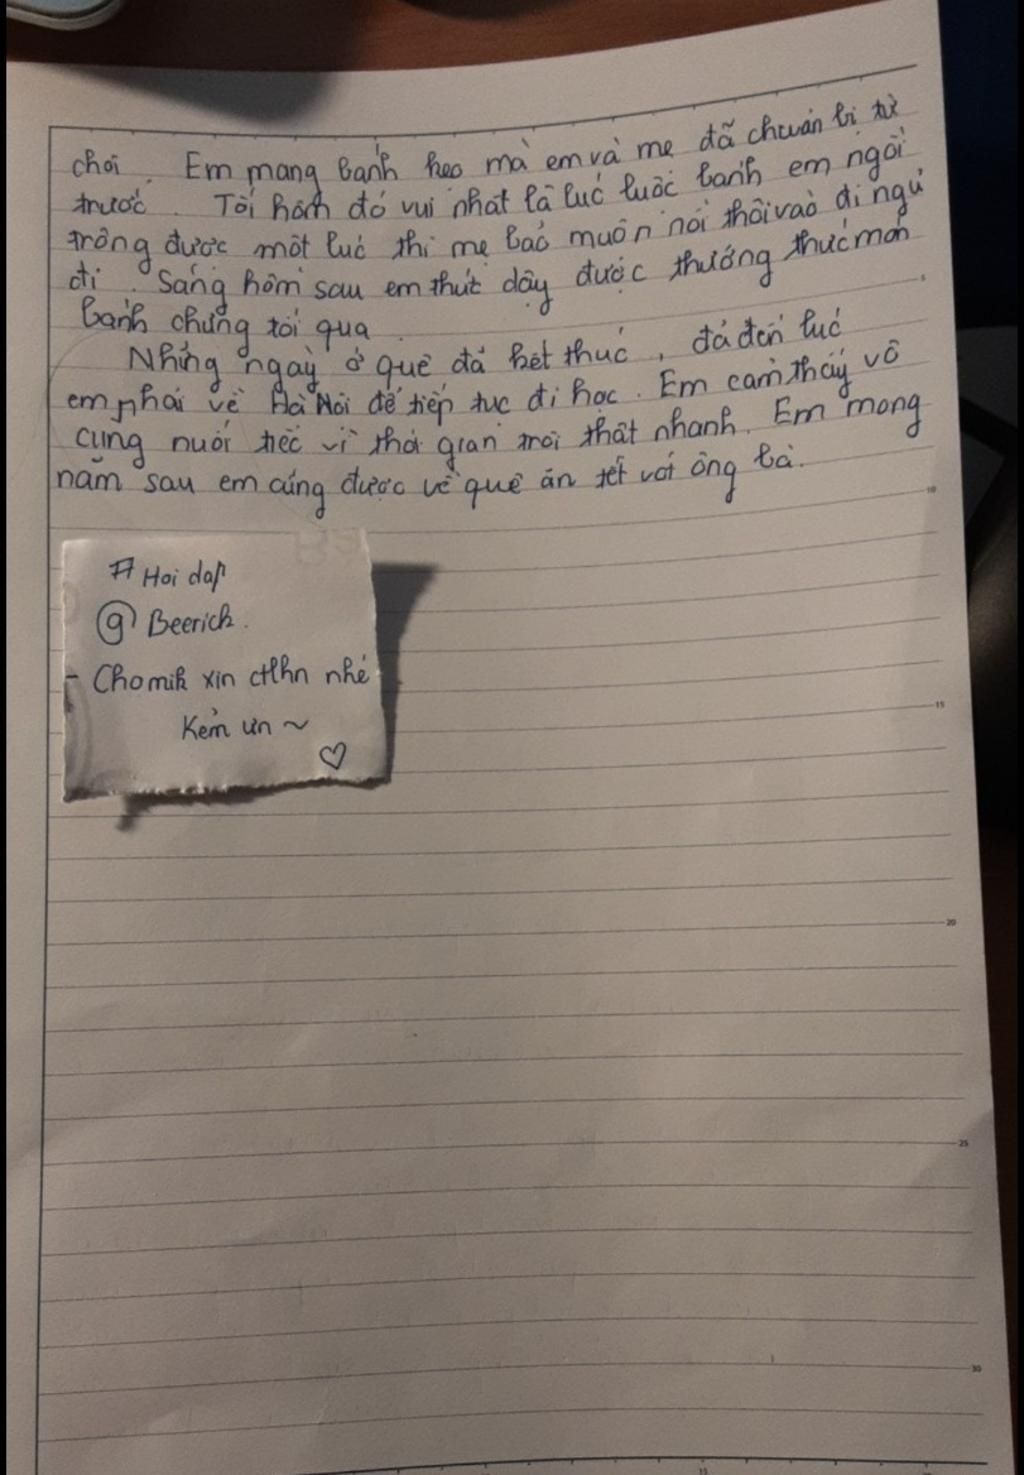 chơi. Em mang bánh kẹo mà em và mẹ đã chuẩn bị từ
trước. Tối hôm đó vui nhất là lúc luộc bánh em ngồi
trông được một lúc thì mẹ bảo muộn rồi thôi vào đi ngủ
đi. Sáng hôm sau em thức dậy được thưởng thức món
bánh chưng tối qua
Những ngày ở quê đã kết thúc, đã đến lúc
em phải về Hà Nội để tiếp tục đi học. Em cảm thấy vô
cùng nuối tiếc vì thời gian trôi thật nhanh. Em mong
năm sau em cũng được về quê ăn tết với ông bà.
5
10
# Hoi dap
@ Beerich.
- Cho mik xin ctlhn nhé
Kẻm ưn ~
♡
15
20
25
30